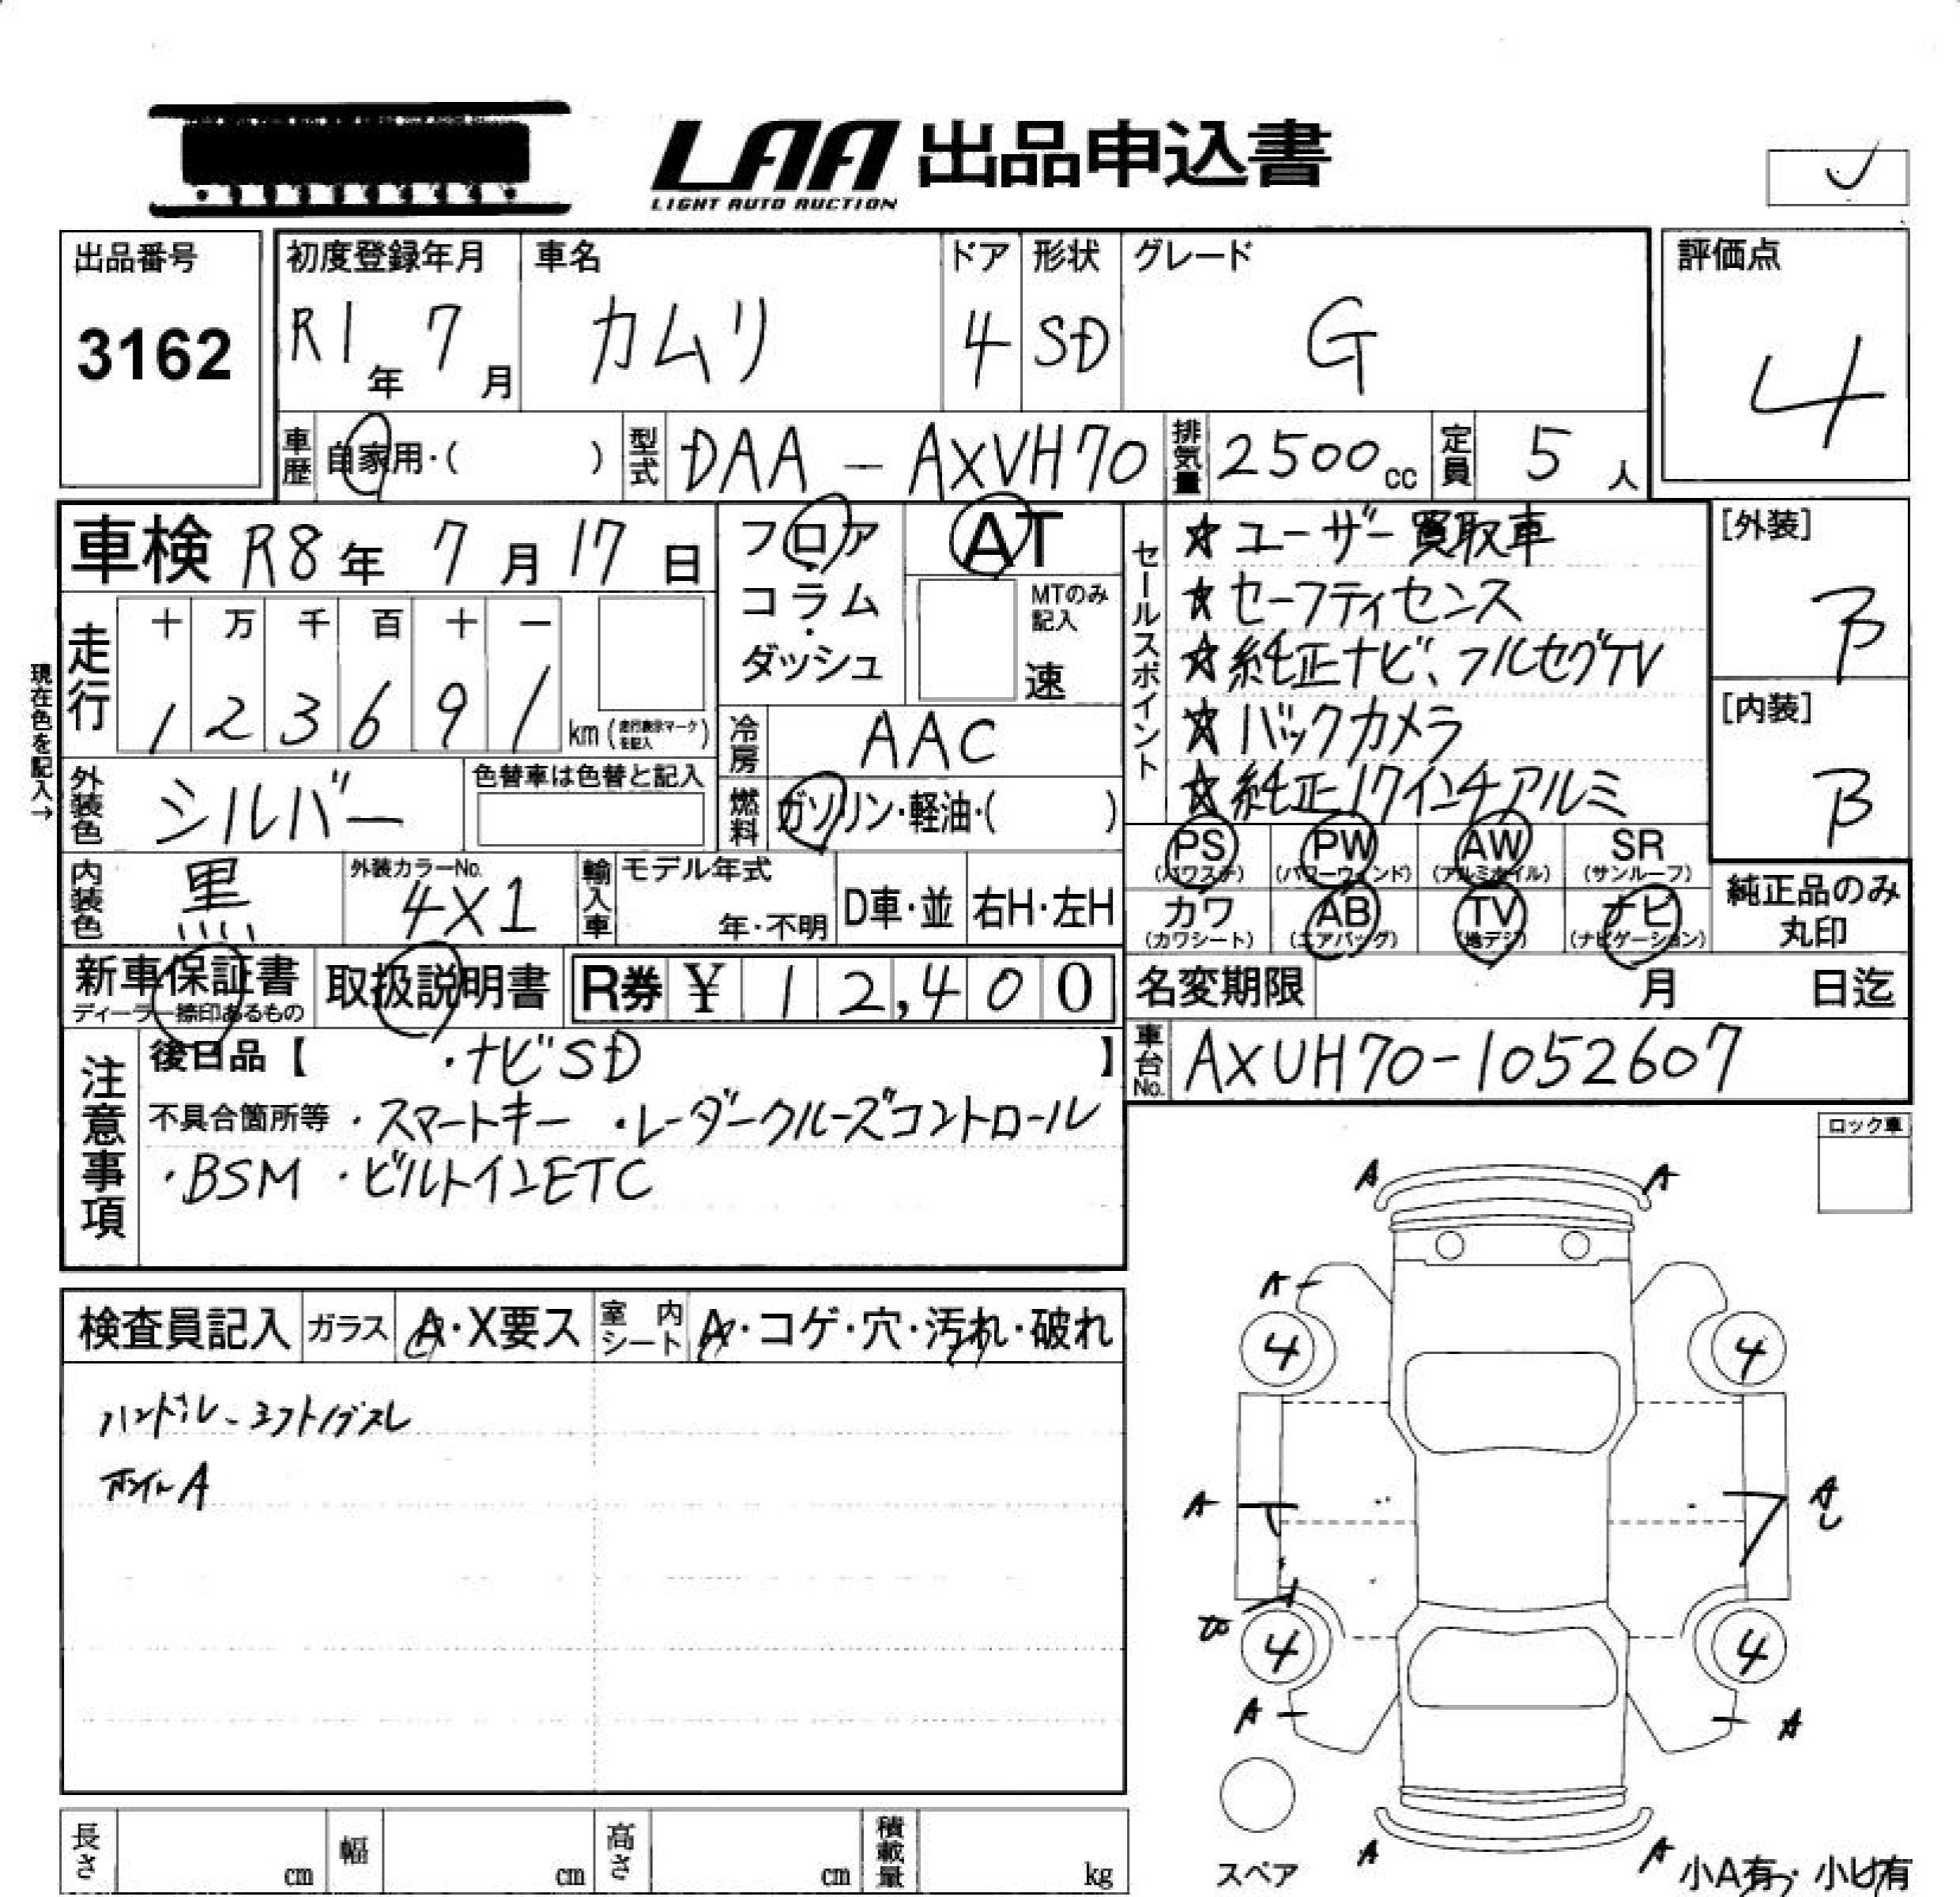 LAA 出品申込書
LIGHT AUTO AUCTION
出品番号
3162
初度登録年月 車名 ドア 形状 グレード
R1年 7月 カムリ 4 SD G
評価点
4
車歴 自家用・( ) 型式 DAA-AXVH70 排気量 2500cc 定員 5人
車検 R8年 7月 17日
フロア・コラム・ダッシュ
AT
MTのみ記入
速
セールスポイント
☆ユーザー買取車
☆セーフティセンス
☆純正ナビ、フルセグTV
☆バックカメラ
☆純正17インチアルミ
[外装]
B
[内装]
B
現在色を記入→
走行 十 万 千 百 十 一
1 2 3 6 9 1 km (走行表示マークを記入)
冷房 AAC
外装色 シルバー 色替車は色替と記入
燃料 ガソリン・軽油・( )
内装色 黒 外装カラーNo. 4X1
輸入車 モデル年式 年・不明 D車・並 右H・左H
PS (パワステ) PW (パワーウィンド) AW (アルミホイル) SR (サンルーフ)
カワ (カワシート) AB (エアバッグ) TV (地デジ) ナビ (ナビゲーション)
純正品のみ丸印
新車保証書 ディーラー捺印あるもの 取扱説明書 R券 ¥ 12,400
名変期限 月 日迄
車台No. AXVH70-1052607
注意事項
後日品【 ・ナビSD 】
不具合箇所等 ・スマートキー ・レーダークルーズコントロール
・BSM ・ビルトインETC
ロック車
検査員記入 ガラス A・X要ス 室内シート A・コゲ・穴・汚れ・破れ
ハンドル、シフトノブスレ
ホイルA
A A
A
4 4
A A
4 4
A A
スペア
A A
小A有・小U有
長さ cm 幅 cm 高さ cm 積載量 kg